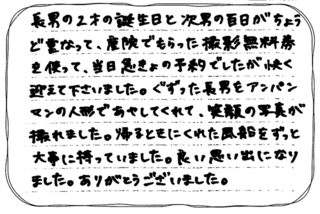 長男の2才の誕生日と次男の百日がちょう
ど重なって、産院でもらった撮影無料券
を使って、当日急きょの予約でしたが快く
迎えて下さいました。ぐずった長男をアンパン
マンの人形であやしてくれて、笑顔の写真が
撮れました。帰るときにくれた風船をずっと
大事に持っていました。良い思い出になり
ました。ありがとうございました。